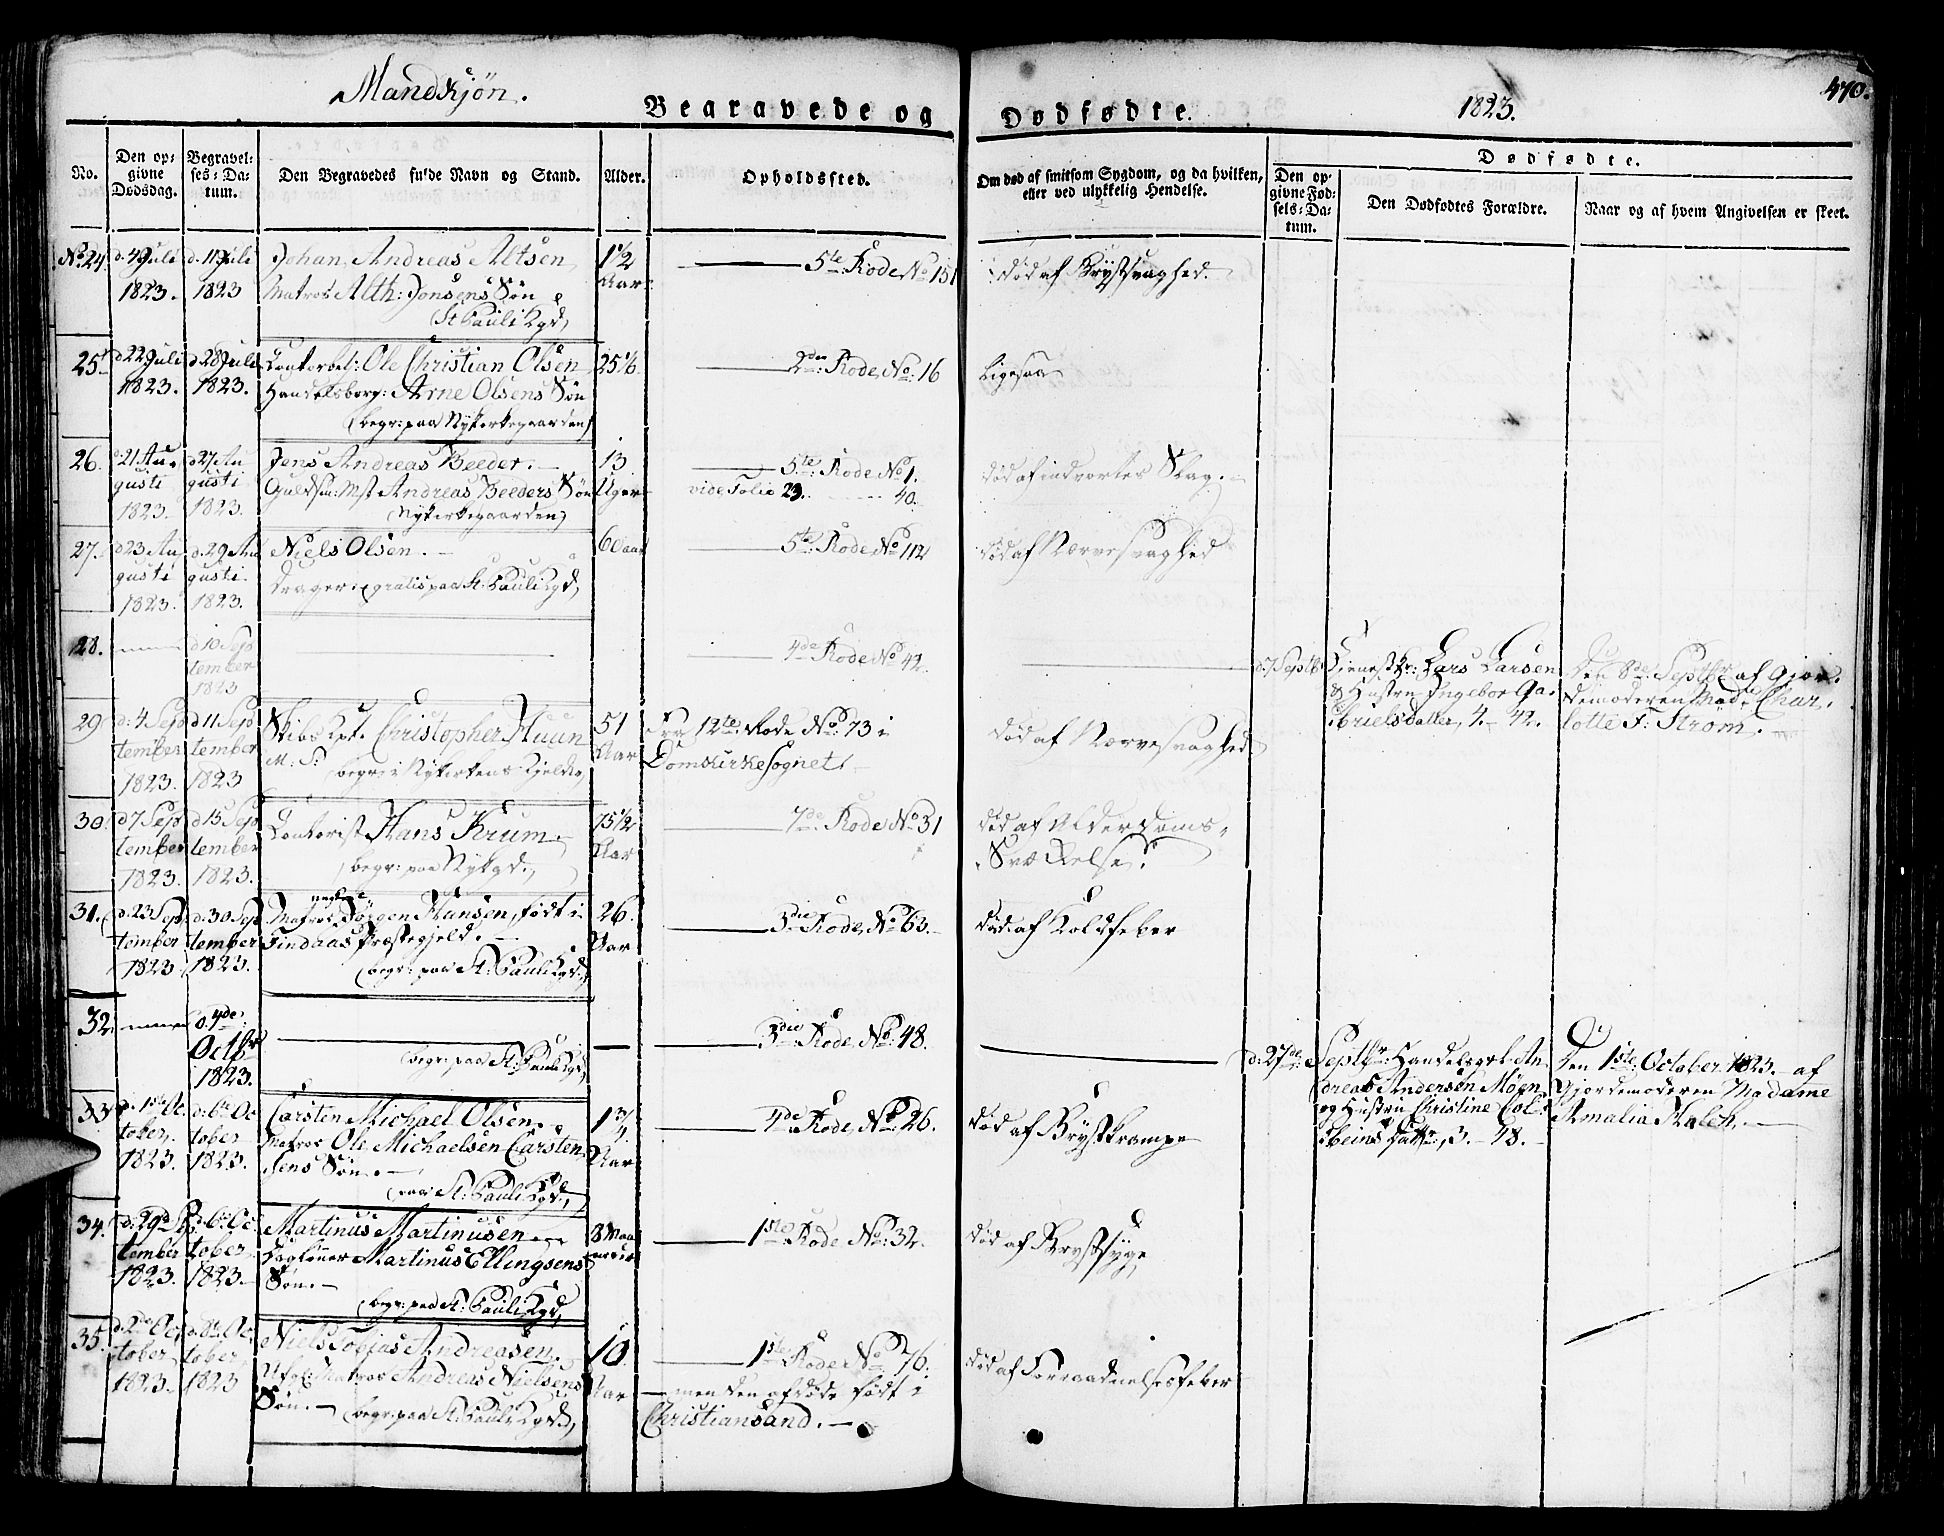 Mandkjøn.
Begravede og Dødfødte.
1823.
470.
No.
Den op-
givne
Dødsdag.
Begravel-
ses-Da-
tum.
Den Begravedes fulde Navn og Stand.
Alder.
Opholdssted.
Om død af smitsom Sygdom, og da hvilken,
eller ved ulykkelig Hendelse.
Dødfødte.
Den op-
givne Fød-
sels-Da-
tum.
Den Dødfødtes Forældre.
Naar og af hvem Angivelsen er skeet.
No. 24.
d. 4 Juli
1823.
d. 11 Juli
1823
Johan Andreas Altsen
Matros Alth: Jonsens Søn
(St Pauli Kgd)
1 1/2
Aar
5te Rode No 151
død af Brystsvaghed.
25.
d. 22 Juli
1823.
d. 28 Juli
1823.
Contorbet: Ole Christian Olsen
Handelsborg: Arne Olsens Søn
(begr: paa Nykirkegaarden)
25 1/6
2den Rode, No: 16
Ligesaa
26.
d. 21 Au-
gusti
1823.
d 27 Au
gusti
1823.
Jens Andreas Beeder. —
Guldsm: Mst Andreas Beeders Søn
(Nykirkegaarden)
13
Uger
5te Rode No 1.
vide Folie 23. 40.
død af indvortes Slag. —
27.
d 23 Au
gusti
1823.
d. 29 Au
gusti
1823.
Niels Olsen. —
Drager: gratis paa St: Pauli Kgd,
60 aar
5te Rode No 112
død af Nervesvaghed
28.
d 10 Sep
tember
1823
4de Rode No 42.
d. 7 Septbr
Tienestkr: Lars Larsen
& Hustru Ingebor Ga-
brielsdatter, 4 - 42.
Den 8de Septbr af Gjor-
demoderen Made Char-
lotte F: Strøm. —
29
d. 4 Sep
tember
1823.
d 11 Sep
tember
1823
Skibs Kpt. Christopher Huun
M. S.
(begr: i Nykirkens Kjelder,
51
Aar
fra 12te Rode No 73 i
Domkirkesognet. —
død af Nervesvaghed
30.
d 7 Sep
tember
1823.
d. 15 Sep
tember
1823.
Contorist Hans Krum —
(begr: paa Nykgd.,
75 1/2
Aar
7de Rode No 31
død af Alderdoms-
Svækkelse.
31.
d. 23 Sep
tember
1823
d. 30 Sep
tember
1823.
Matros Jørgen Hansen, født i
Findaas Præstegjeld. —
(begr: paa St: Pauli Kgd.,
26.
Aar
3die Rode, No 63. —
død af Koldfeber
32.
d. 4de
Octbr
1823.
(begr: paa St: Pauli Kgd,
3die Rode, No: 48.
d. 27de
Septbr: Handelsgrl: An
dreas Andersen Møen
og Hustru Christine Col-
beins datter, 3. - 48. —
Den 1ste October 1823. — af
Gjordemoderen Madame
Amalia Kaleh. —
33
d. 1ste Oc
tober.
1823.
d: 6te Oc
tober
1823.
Carsten Michael Olsen.
Matros Ole Michaelsen Carsten
sens Søn. —
(paa St: Pauli Kgd.,
1 3/4
Aar
4de Rode, No 26.
død af Brystkrampe
34.
d. 29d Sep
tember
1823.
d. 6te Oc
tober.
1823. —
Martinus Martinusen
Dagløner Martinus Ellingsens
Søn. —
(begr: paa St: Pauli Kgd,
8 Maa
neder
1ste Rode No: 32.
død af Brystsyge,
35.
d. 2de Oc
tober
1823.
d. 8de Oc
tober,
1823
Niels Tobias Andreasen.
Ufgl: Matros Andreas Nielsens
Søn. — (begr: paa St: Pauli Kgd.,
10
Aar
1ste Rode No 76.
— men den afdøde født i
Christiansand. —
død af Forraadnelsesfeber